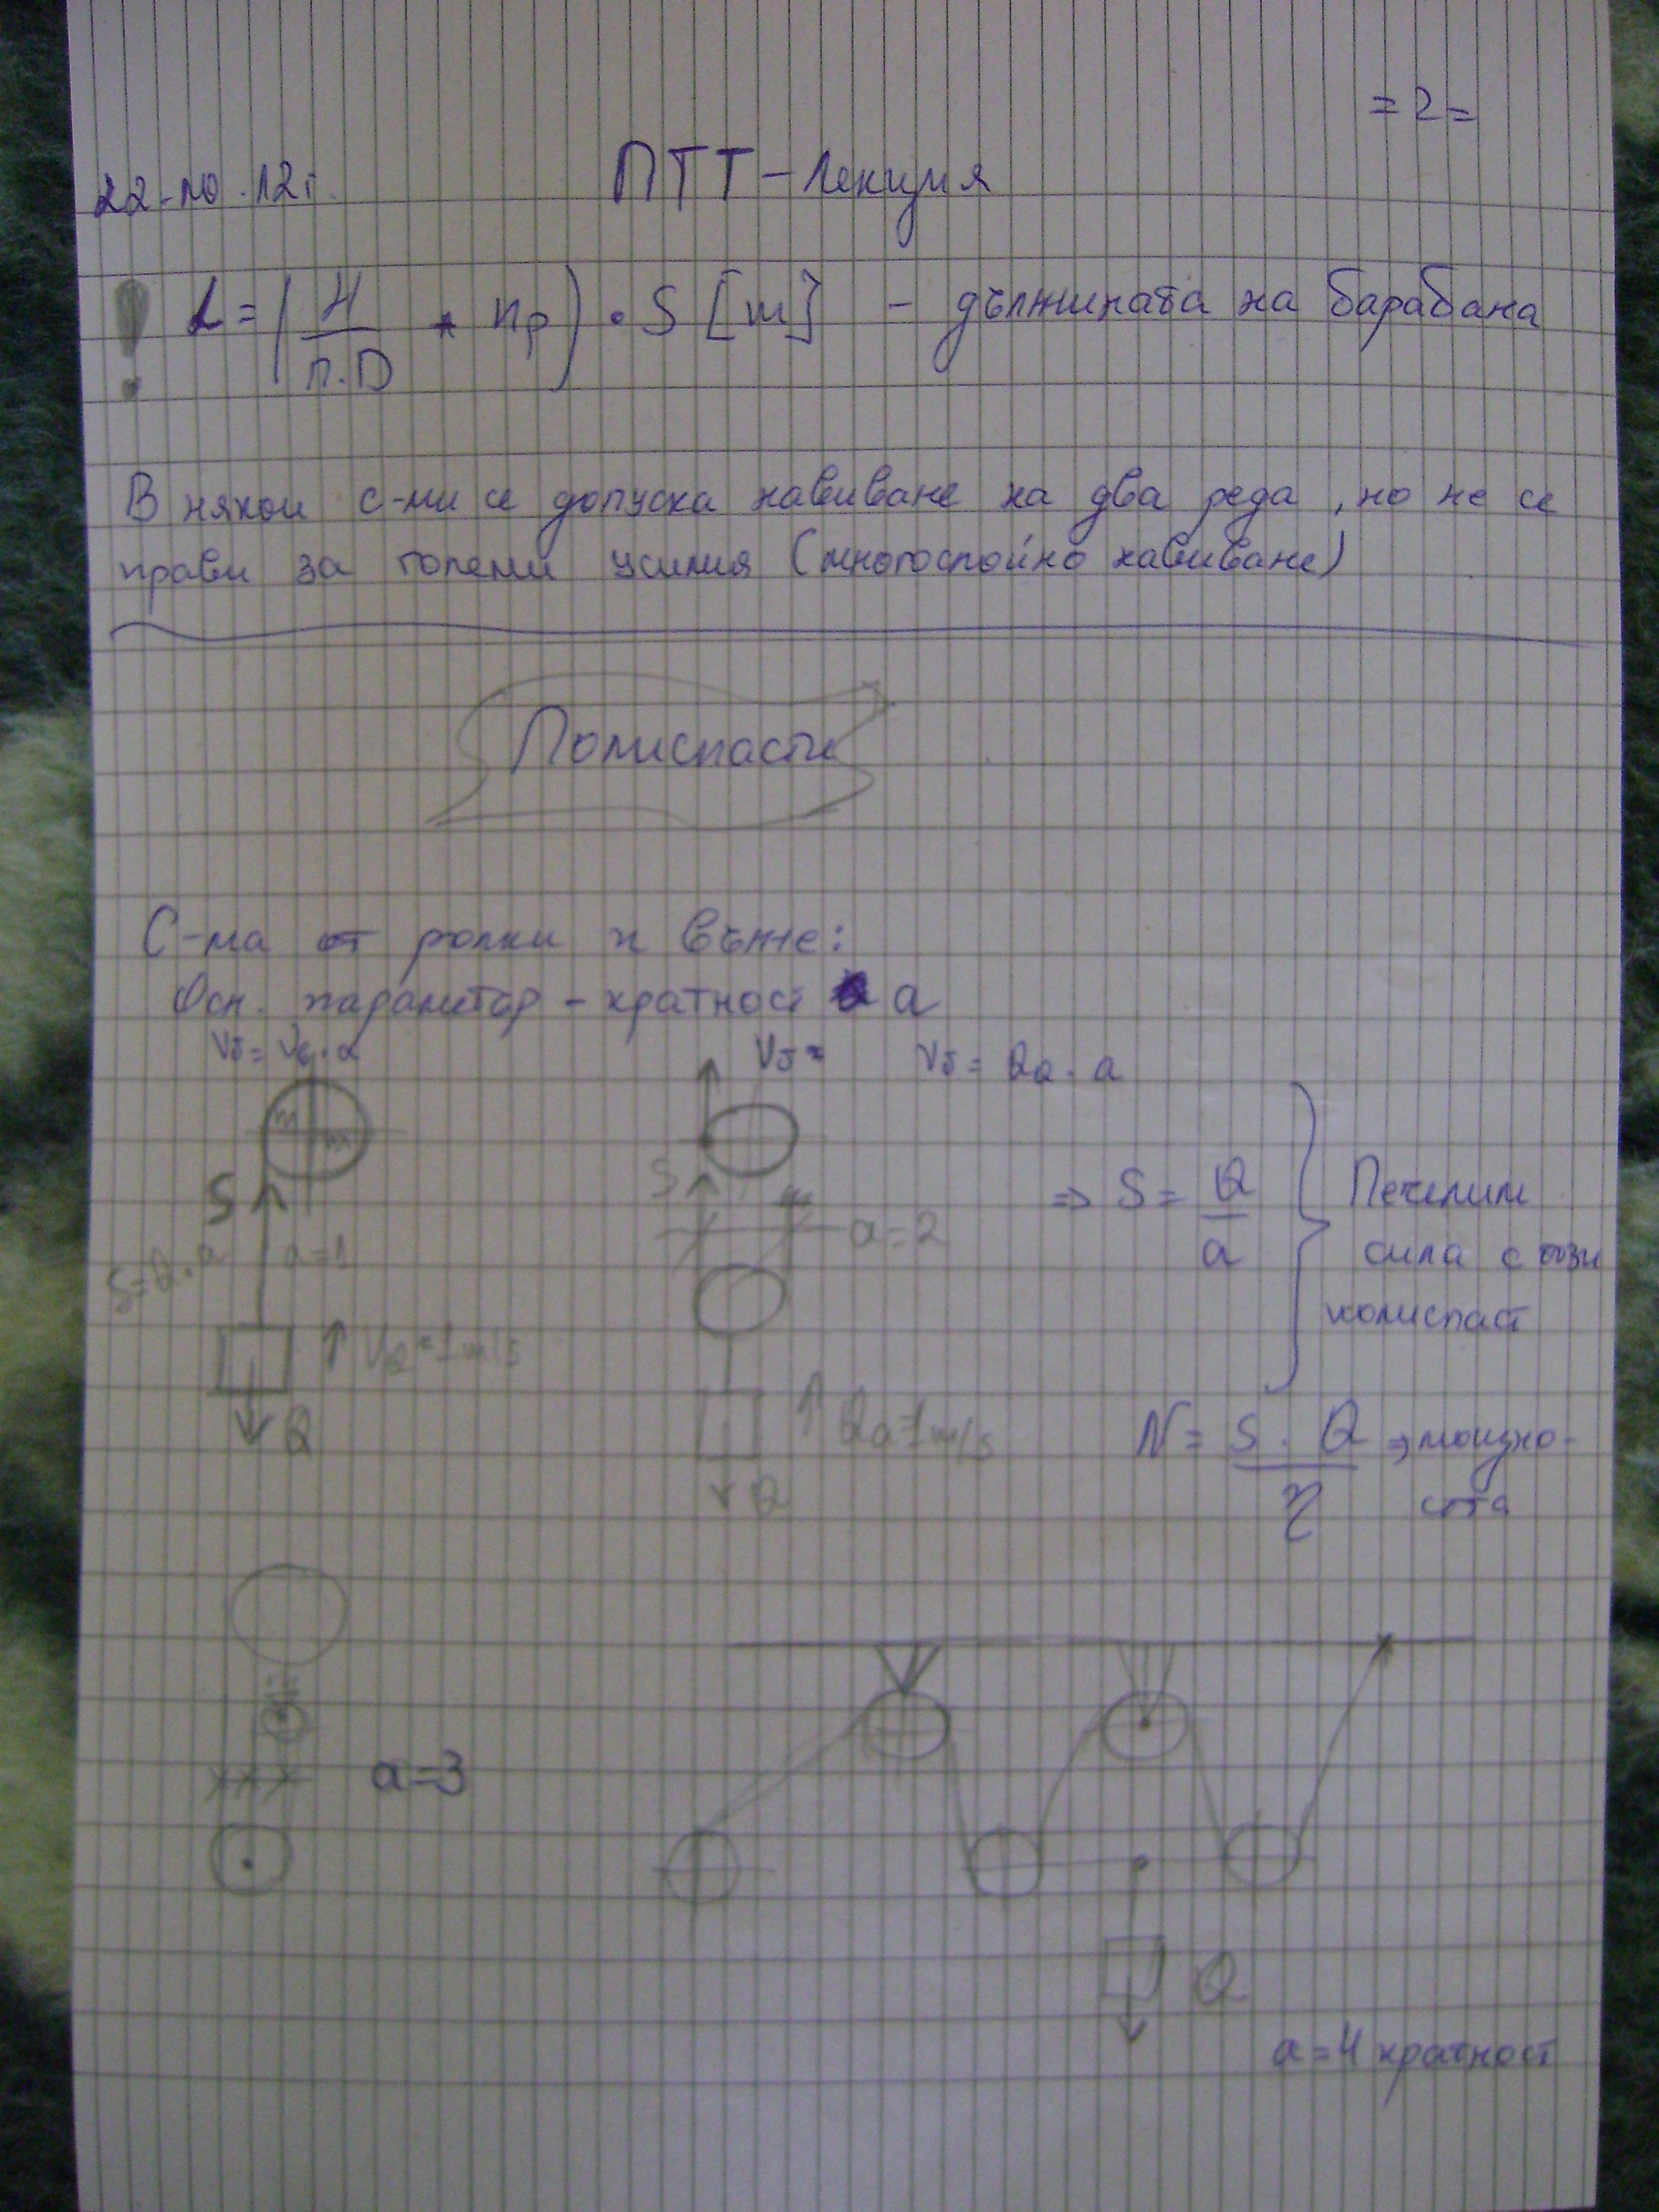 = 2 =
22-ю.12г.
ПТТ - Лекция
! L = (H / π.D * nр) . S [m] - дължината на барабана
В някои с-ми се допуска навиване на два реда, но не се
прави за големи усилия (многослойно навиване)
Полиспасти
С-ма от ролки и въже:
Осн. параметър - кратност a
Vб = VQ . a
Vб =
Vб = Qa . a
S
S = Q . a
a = 1
VQ = 1 m/s
Q
S
a = 2
Qa = 1 m/s
Q
=> S = Q / a
Печелим
сила с този
полиспаст
N = S . Q / η => мощно-
стта
a = 3
Q
a = 4 кратност